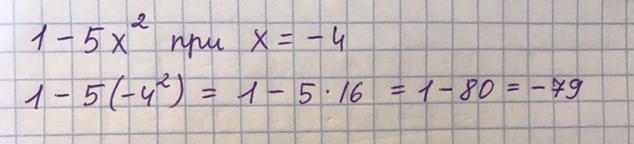 1 - 5x² при x = -4
1 - 5(-4²) = 1 - 5·16 = 1 - 80 = -79